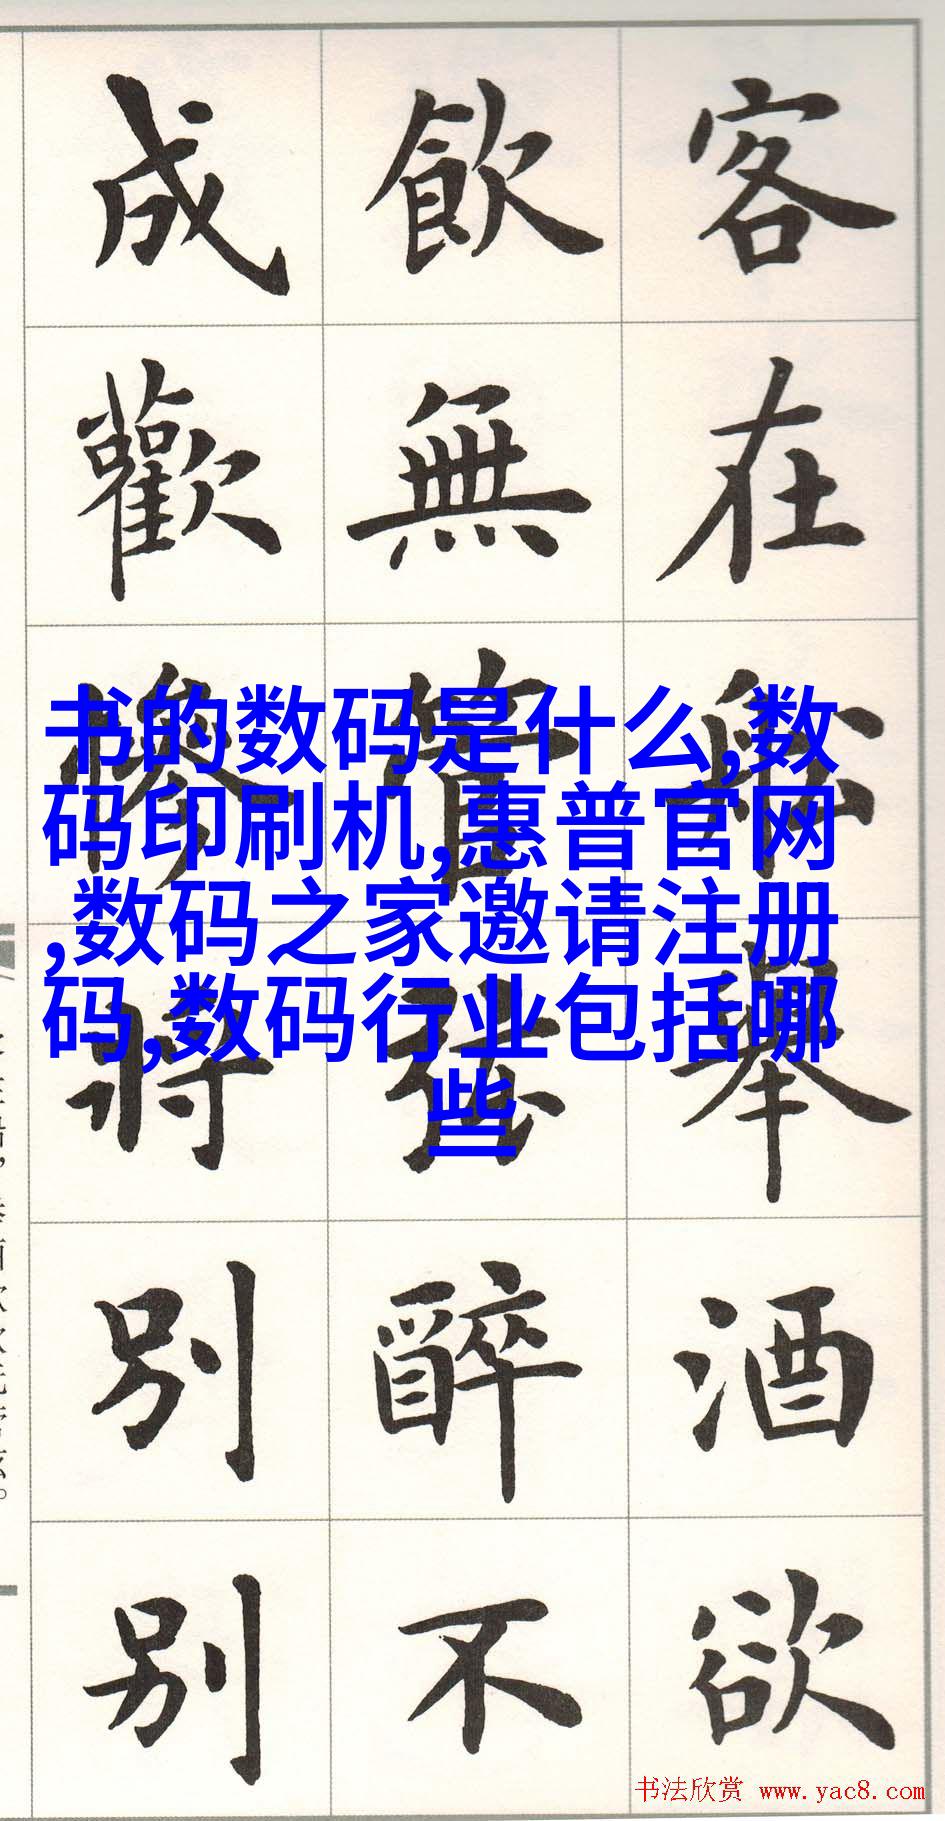 客在船舉酒欲
飲無管弦醉不
成歡慘將別別
书的数码是什么,数
码印刷机,惠普官网
,数码之家邀请注册
码,数码行业包括哪
些
书法欣赏 www.yac8.com